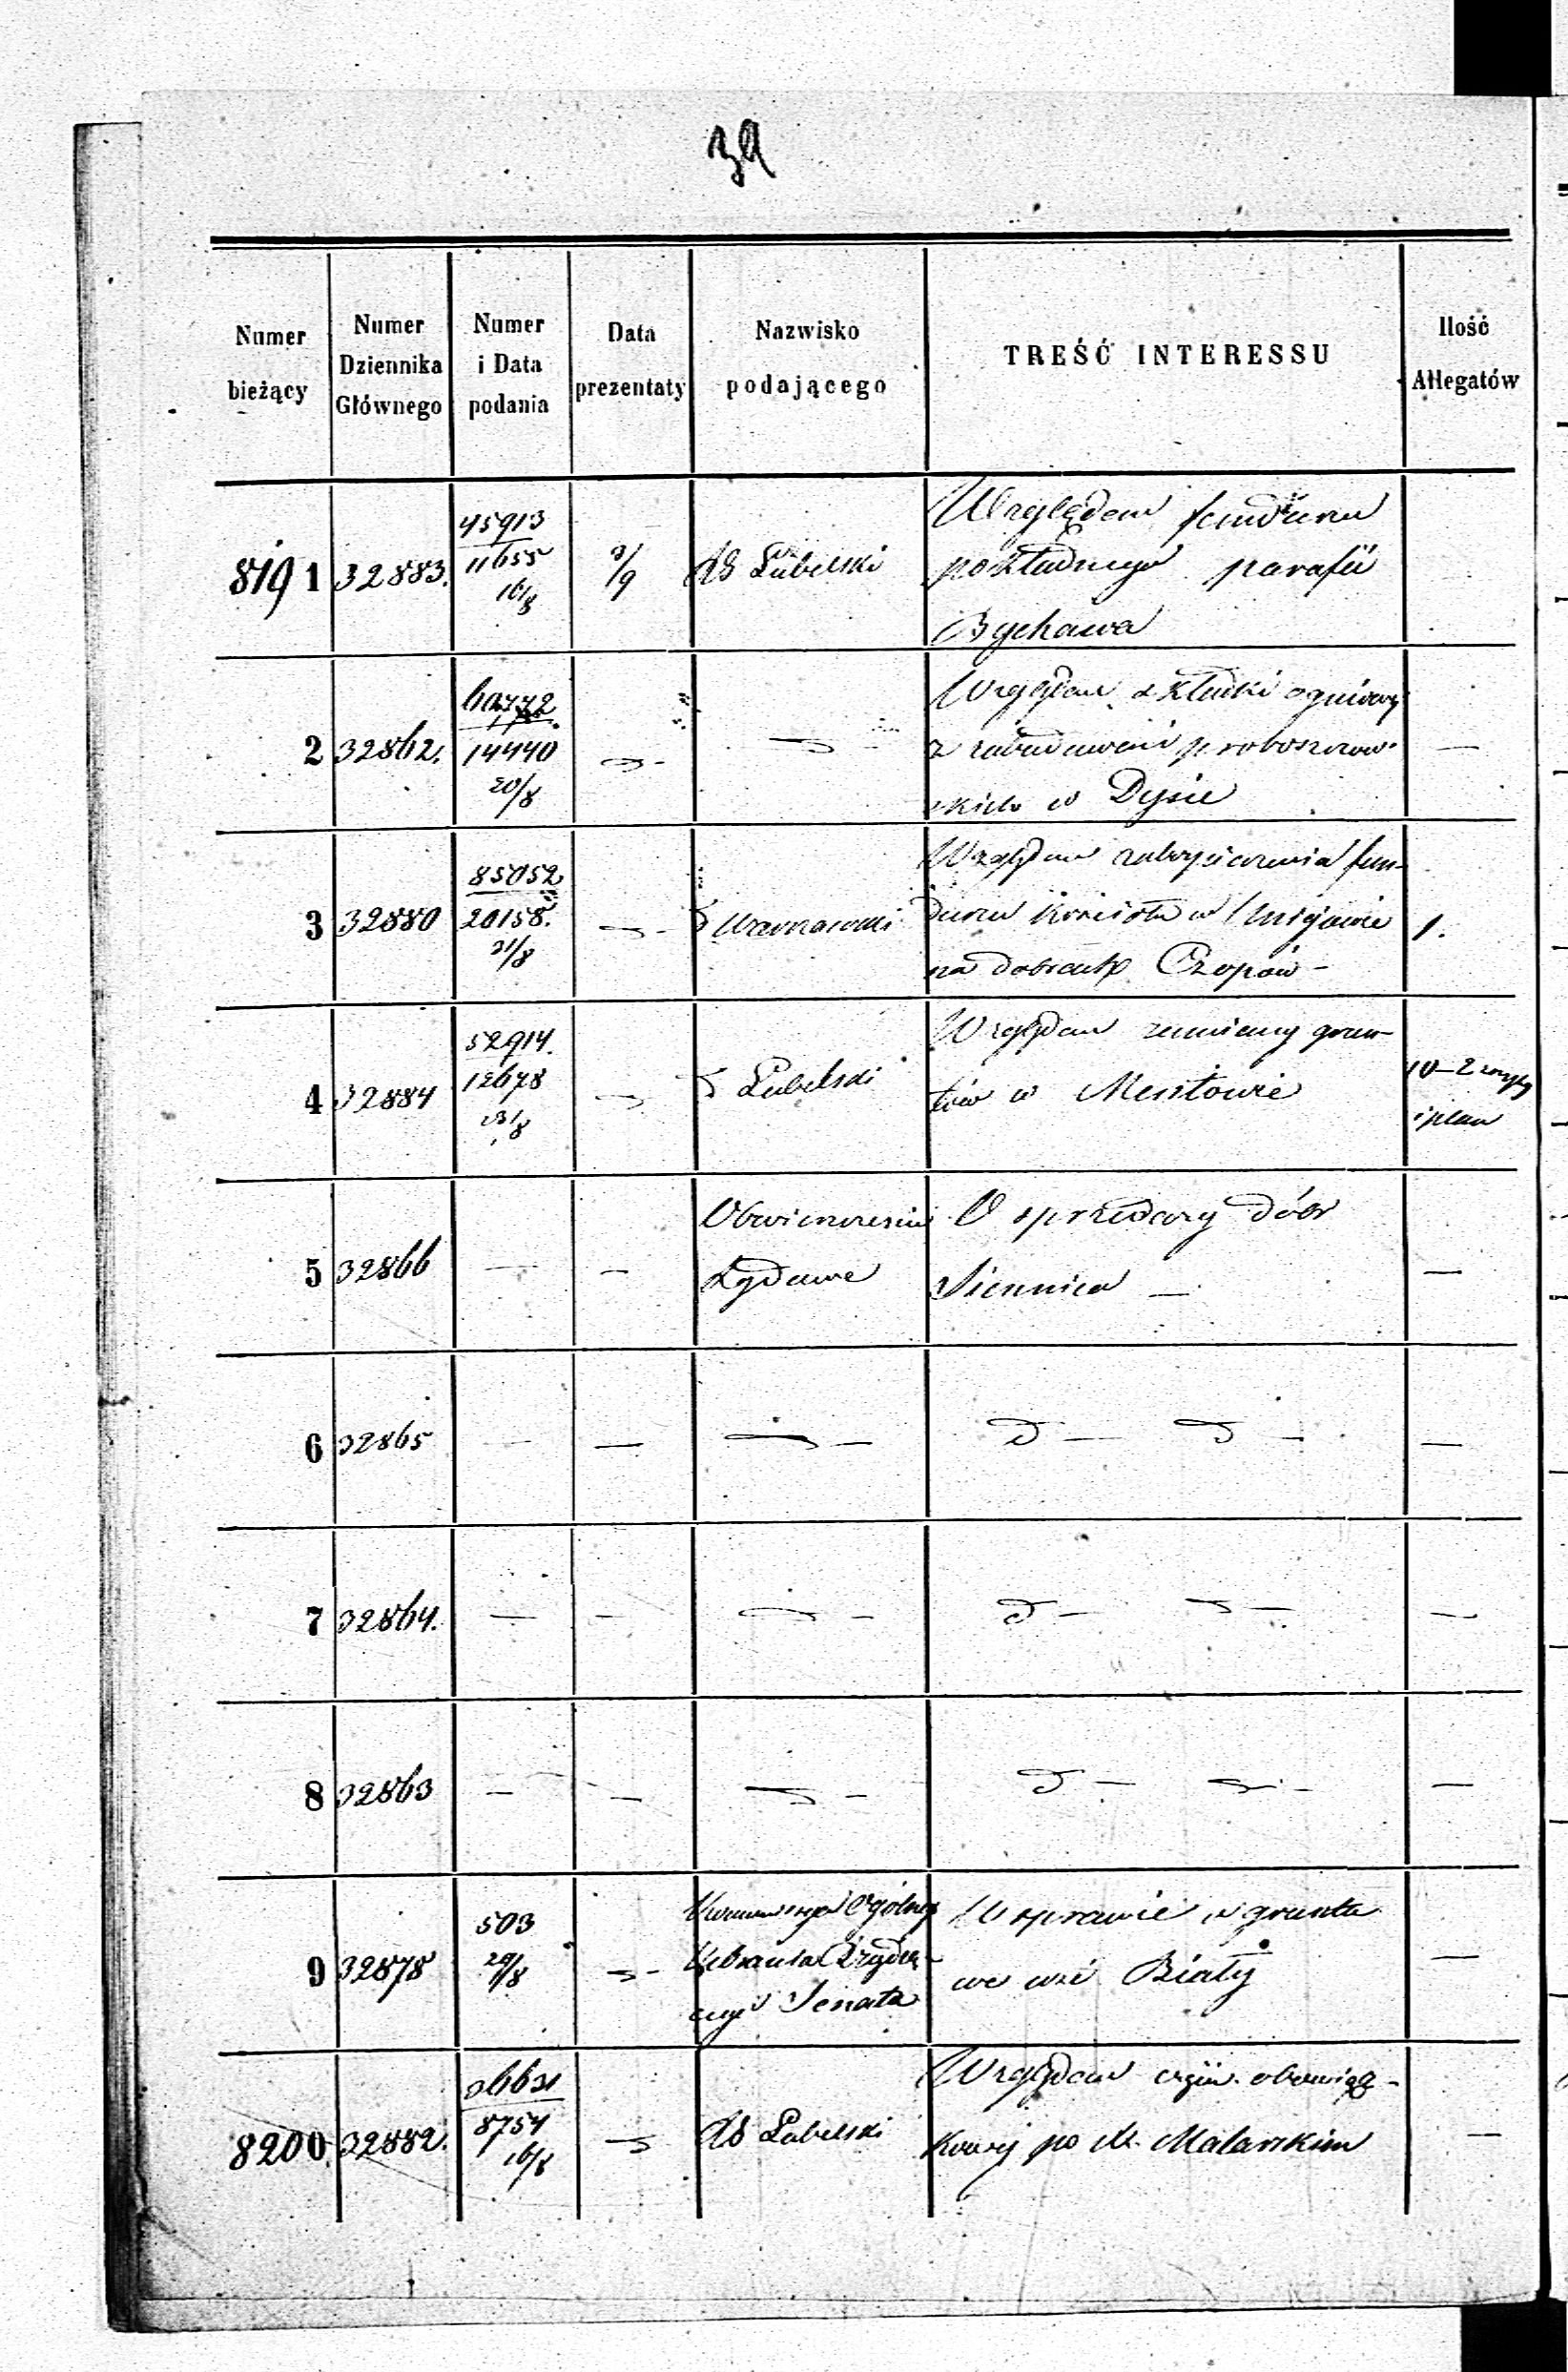 39
Numer bieżący
Numer Dziennika Głównego
Numer i Data podania
Data prezentaty
Nazwisko podającego
TREŚĆ INTERESSU
Ilość Allegatów
8191 32883. 45913 11655 16/8 3/9 RG Lubelski Względem funduszu
pokładnego parafii
Bychawa
2 32862. 14440 20/8 Względem składki ogniowej
z zabudowań proboszczow-
skich w Dysie —
3 32880 85052 20158. 31/8 Warszawski Względem zabezpieczenia fun-
duszu kościoła w
na dobrach Czopów – 1.
4 32884 52914. 12678 23/8 Lubelski Względem zamiany grun-
tów w 10–2
i plan
5 32866 — — Obwieszczenie O sprzedaży dóbr
Sądowe Siennica — —
6 32865 — — — D — D — —
7 32864. — — — D — D — —
8 32863 — — — D — D — —
9 32878 503 29/8 Ogólnego W sprawie o grunta
Zebrania Rządzą-
cego Senatu we wsi Biały —
8200 32882. 8754 16/8 RG Lubelski Względem obowiąz-
kowej po X. Malarskim —